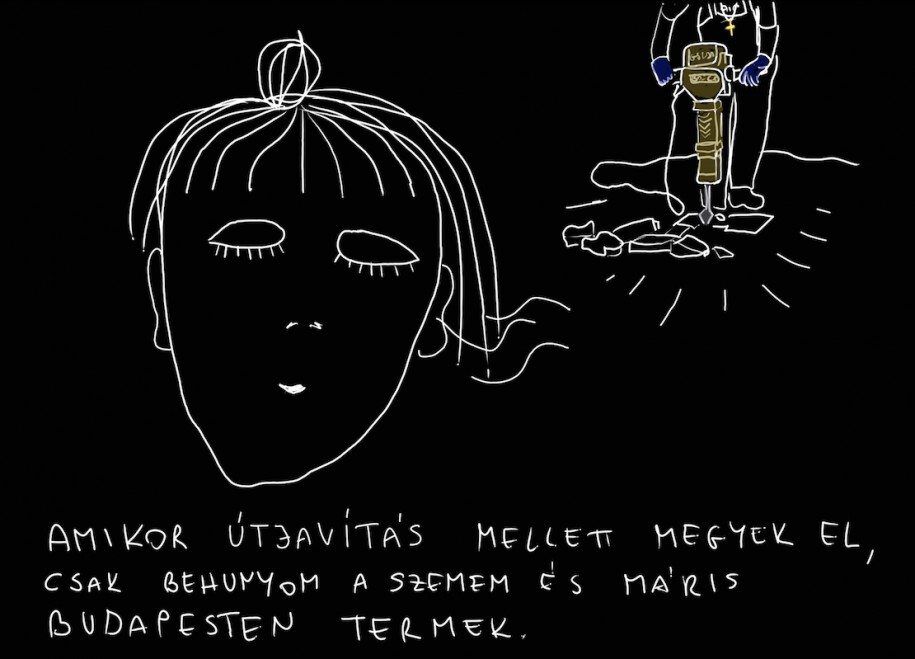 AMIKOR ÚTJAVÍTÁS MELLETT MEGYEK EL,
CSAK BEHUNYOM A SZEMEM ÉS MÁRIS
BUDAPESTEN TERMEK.